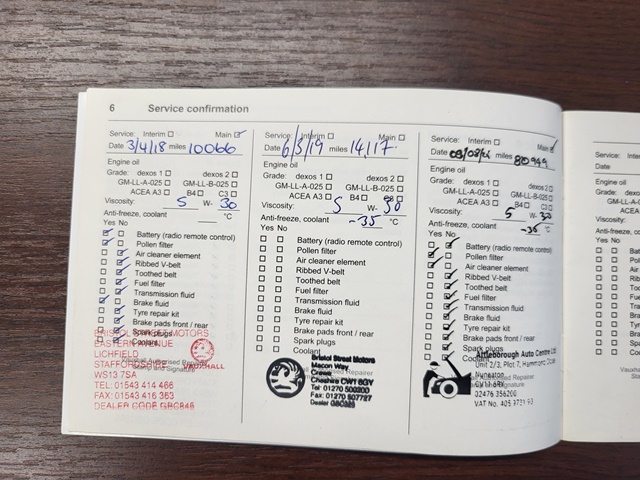 6 Service confirmation
Service: Interim Main
Date 3/4/18 miles 10066
Engine oil
Grade: dexos 1 dexos 2
GM-LL-A-025 GM-LL-B-025
ACEA A3 B4 C3
Viscosity: 5 W- 30
Anti-freeze, coolant °C
Yes No
Battery (radio remote control)
Pollen filter
Air cleaner element
Ribbed V-belt
Toothed belt
Fuel filter
Transmission fluid
Brake fluid
Tyre repair kit
Brake pads front / rear
Spark plugs
Coolant
BRISTOL STREET MOTORS
EASTERN AVENUE
LICHFIELD
STAFFORDSHIRE
WS13 7SA
TEL: 01543 414 466
FAX: 01543 416 363
DEALER CODE
VAUXHALL
Service: Interim Main
Date 6/3/19 miles 14,117
Engine oil
Grade: dexos 1 dexos 2
GM-LL-A-025 GM-LL-B-025
ACEA A3 B4 C3
Viscosity: 5 W- 30
Anti-freeze, coolant -35 °C
Yes No
Battery (radio remote control)
Pollen filter
Air cleaner element
Ribbed V-belt
Toothed belt
Fuel filter
Transmission fluid
Brake fluid
Tyre repair kit
Brake pads front / rear
Spark plugs
Coolant
Bristol Street Motors
Macon Way
Crewe
Cheshire CW1 6GY
Tel: 01270 500200
Fax: 01270 507727
Dealer
Service: Interim Main
Date miles
Engine oil
Grade: dexos 1 dexos 2
GM-LL-A-025 GM-LL-B-025
ACEA A3 B4 C3
Viscosity: 5 W- 30
Anti-freeze, coolant -35 °C
Yes No
Battery (radio remote control)
Pollen filter
Air cleaner element
Ribbed V-belt
Toothed belt
Fuel filter
Transmission fluid
Brake fluid
Tyre repair kit
Brake pads front / rear
Spark plugs
Coolant
Attleborough Auto Centre Ltd
Unit 2/3, Plot 7,
Nuneaton
CV11 6RY
02476 356200
VAT No.
Service:
Date
Engine oil
Grade:
Viscosity:
Anti-freeze,
Yes No